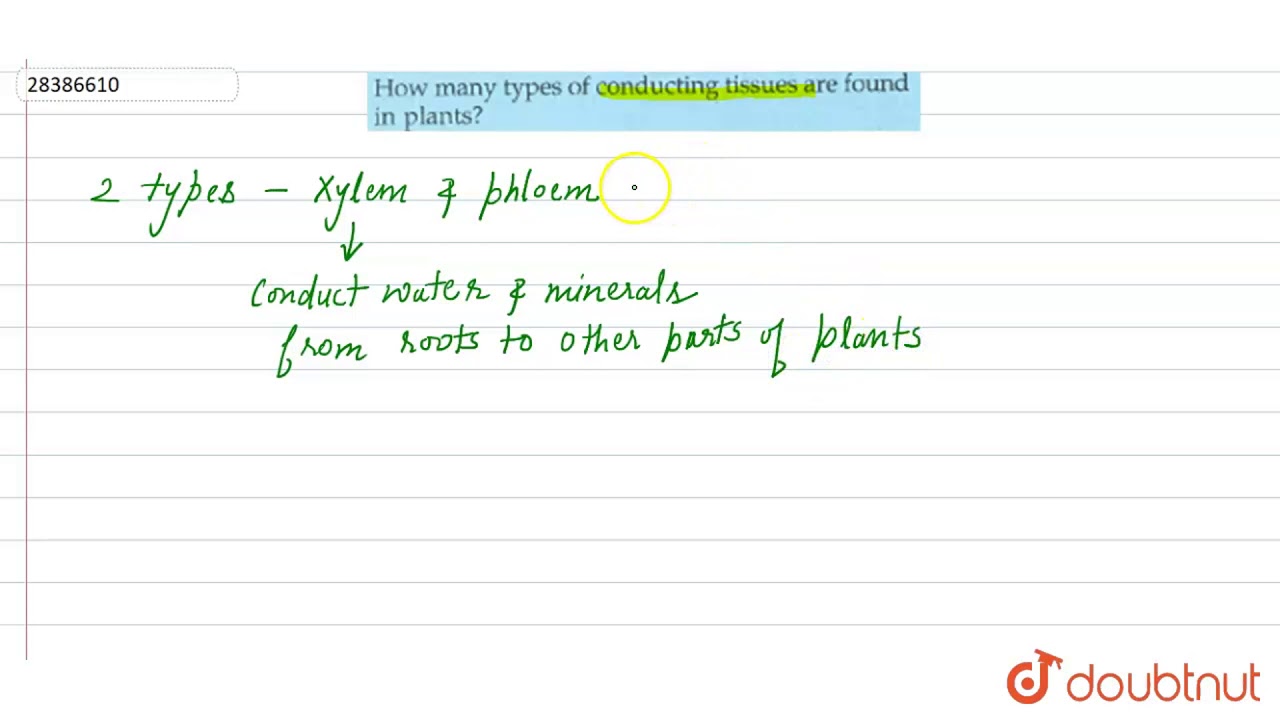 28386610
How many types of conducting tissues are found
in plants?
2 types - Xylem & phloem
↓
Conduct water & minerals
from roots to other parts of plants
doubtnut